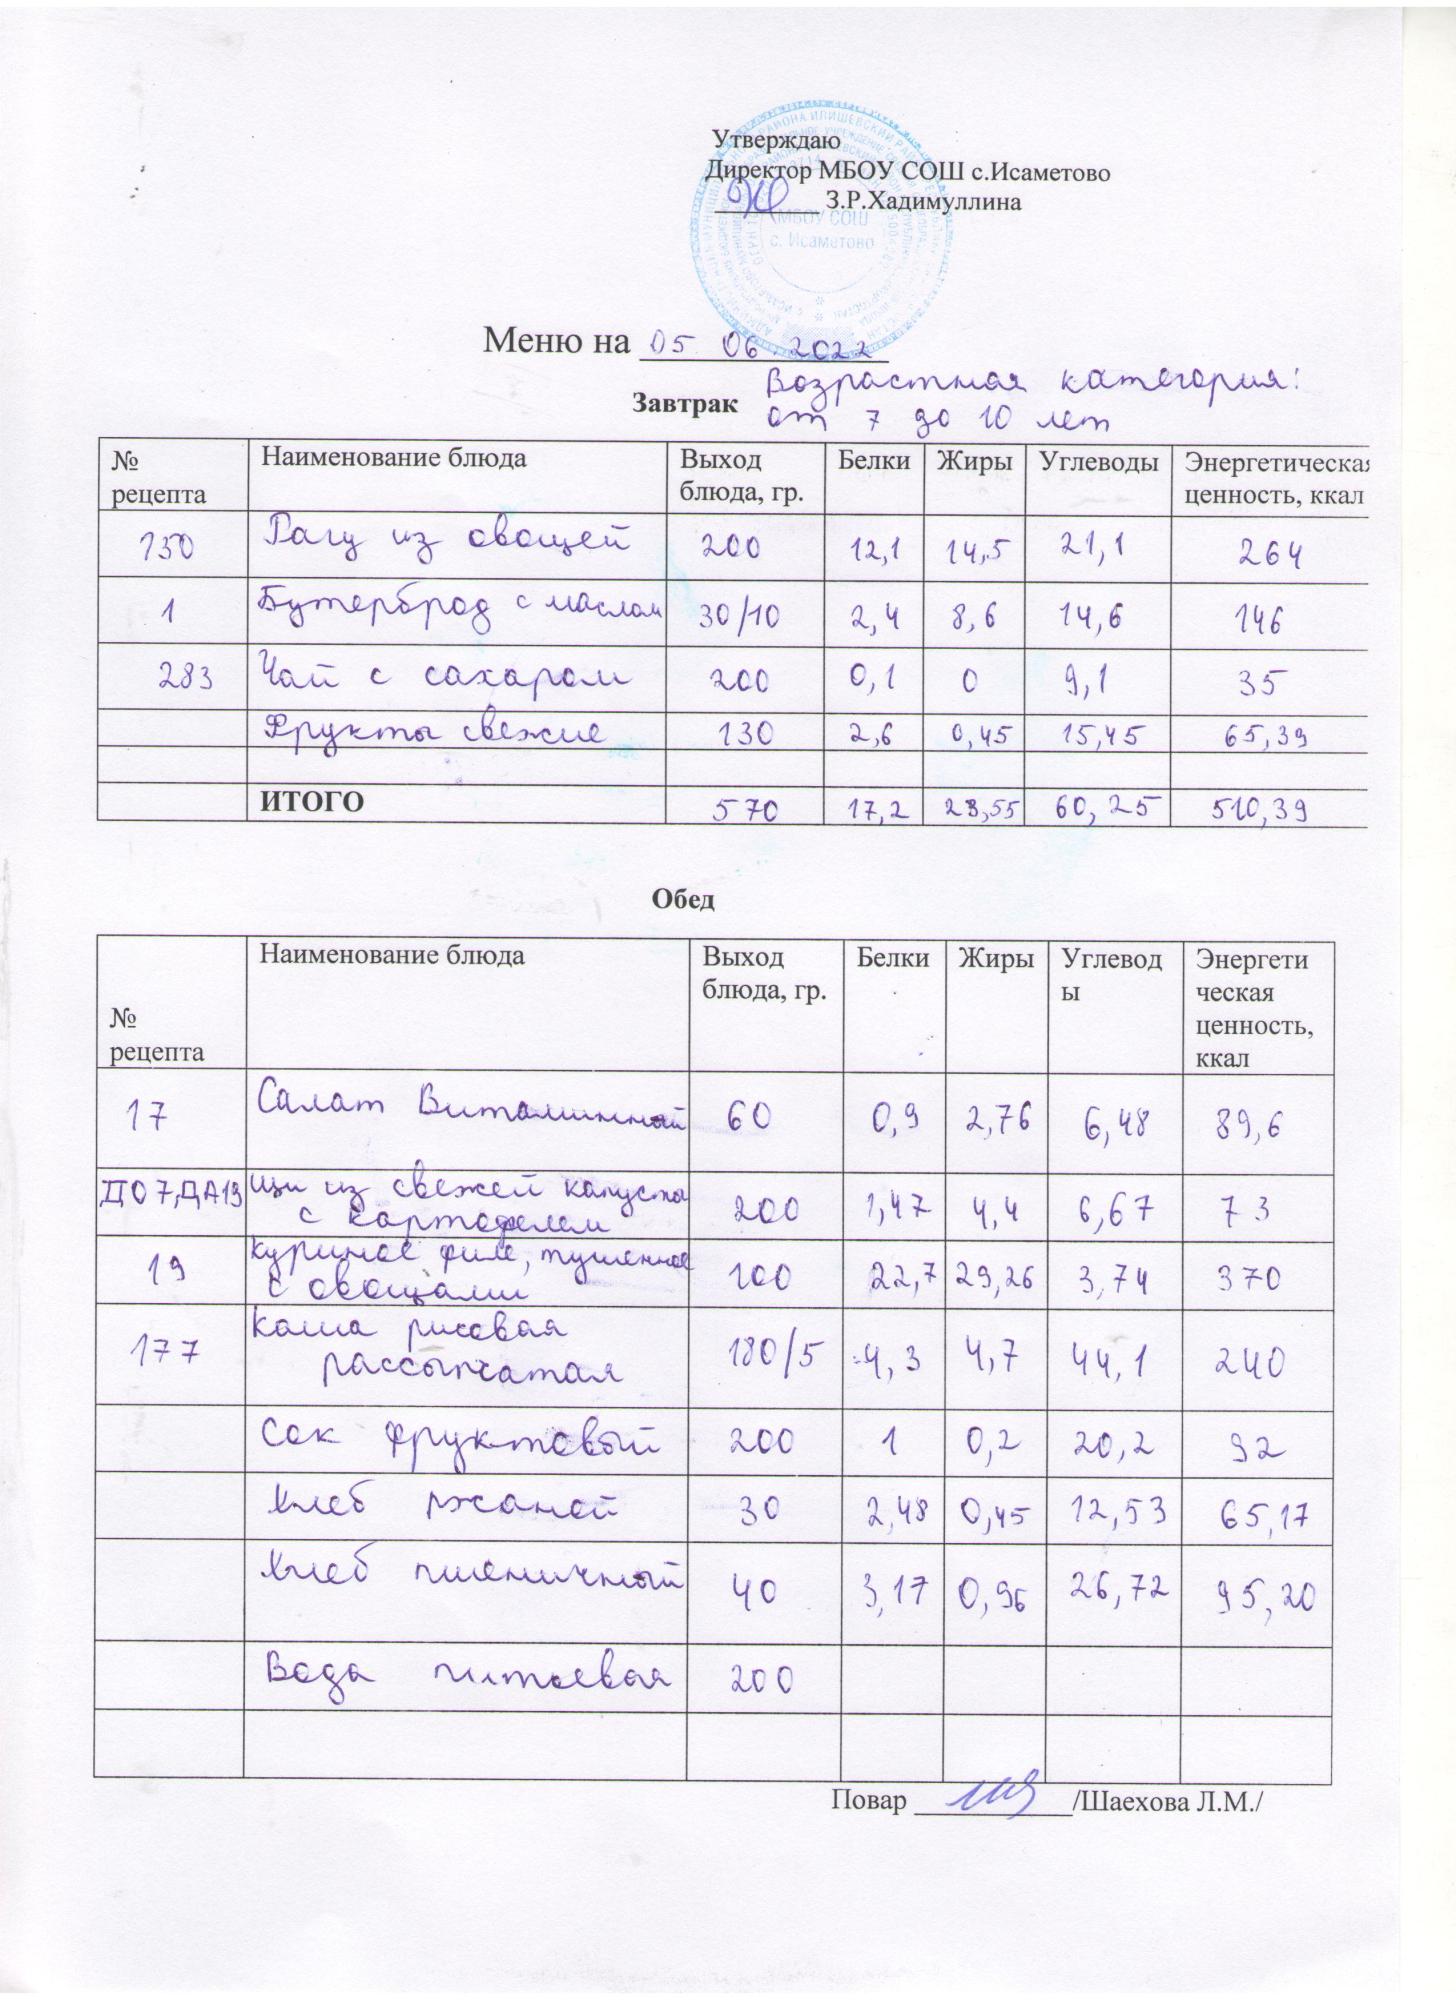 Утверждаю
Директор МБОУ СОШ с.Исаметово
З.Р.Хадимуллина
МБОУ СОШ
с. Исаметово
Меню на 05 06 2022
Возрастная категория:
Завтрак от 7 до 10 лет
№ рецепта Наименование блюда Выход блюда, гр. Белки Жиры Углеводы Энергетическая ценность, ккал
150 Рагу из овощей 200 12,1 14,5 21,1 264
1 Бутерброд с маслом 30/10 2,4 8,6 14,6 146
283 Чай с сахаром 200 0,1 0 9,1 35
Фрукты свежие 130 2,6 0,45 15,45 65,39
ИТОГО 570 17,2 23,55 60,25 510,39
Обед
№ рецепта Наименование блюда Выход блюда, гр. Белки Жиры Углеводы Энергетическая ценность, ккал
17 Салат Витаминный 60 0,9 2,76 6,48 89,6
ДО7,ДА19 Щи из свежей капусты
с картофелем 200 1,47 4,4 6,67 73
19 Куриное филе, тушенное
с овощами 100 22,7 29,26 3,74 370
177 Каша рисовая
рассыпчатая 180/5 4,3 4,7 44,1 240
Сок фруктовый 200 1 0,2 20,2 92
Хлеб ржаной 30 2,48 0,45 12,53 65,17
Хлеб пшеничный 40 3,17 0,96 26,72 95,20
Вода питьевая 200
Повар /Шаехова Л.М./